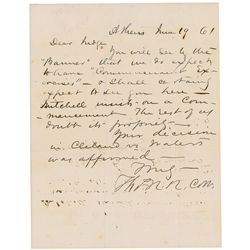 Athens June 19 61
Dear Judge
You will see by the
"Banner" that we do expect
to have "Commencement Ex-
ercises" – & I shall certainly
expect to see you here –
Mitchell insists on a Com-
mencement. The rest of us
doubt its propriety –
Your decision
in Cleland vs Waters
was approved –
Truly
Th R. R. Cobb